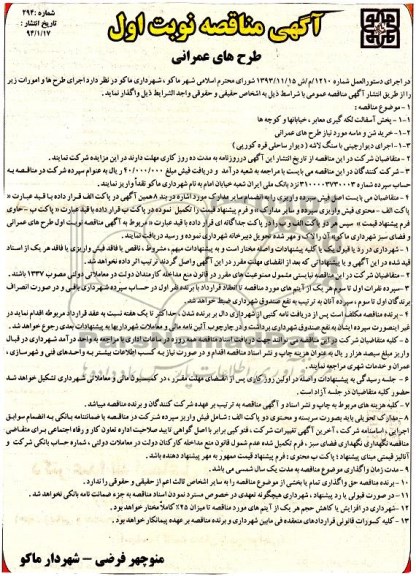 شماره: ۲۹۴
تاریخ انتشار:
۹۴/۱/۱۷
آگهی مناقصه نوبت اول
طرح های عمرانی
در اجرای دستورالعمل شماره ۱۲۱۰/م/ش ۱۳۹۳/۱۱/۱۵ شورای محترم اسلامی شهر ماکو، شهرداری ماکو در نظر دارد اجرای طرح ها و امورات زیر
را از طریق انتشار آگهی مناقصه عمومی با شرایط ذیل به اشخاص حقیقی و حقوقی واجد الشرایط ذیل واگذار نماید.
۱- موضوع مناقصه:
۱-۱- پخش آسفالت لکه گیری معابر، خیابانها و کوچه ها
۲-۱- خرید شن و ماسه مورد نیاز طرح های عمرانی
۳-۱- اجرای دیوارچینی با سنگ لاشه (دیوار ساحلی قره کورپی)
۲- متقاضیان شرکت در این مناقصه از تاریخ انتشار این آگهی در روزنامه به مدت ده روز کاری مهلت دارند در این مزایده شرکت نمایند.
۳- شرکت کنندگان در این مناقصه می بایست با مراجعه به شعبه درآمد و دریافت فیش مبلغ ۴۰/۰۰۰/۰۰۰ ریال به عنوان سپرده شرکت در مناقصه به
حساب سپرده شماره ۳۱۰۰۰۰۳۷۳۰۰۰۳ نزد بانک ملی ایران شعبه خیابان امام به نام شهرداری ماکو نقداً واریز نمایند.
۴- متقاضیان می بایست اصل فیش واریزی سپرده و سایر مدارک مورد اشاره در بند ۸ همین آگهی در پاکت الف قرار داده با قید عبارت «
پاکت الف - محتوی فیش واریزی سپرده و سایر مدارک» و فرم پیشنهاد قیمت را تکمیل نموده در پاکت ب قرار داده با قید عبارت « پاکت ب - حاوی
فرم پیشنهاد قیمت» سپس هر دو پاکت را در پاکت جداگانه ای قرار داده با قید عبارت « مربوط به آگهی مناقصه نوبت اول طرح های عمرانی
و فضای سبز شهرداری ماکو» آن را لاک و مهر شده تحویل دبیرخانه شهرداری نموده و رسید دریافت نمایند.
۱- شهرداری در رد یا قبول یک یا کلیه پیشنهادات واصله مختار است و به پیشنهادات مبهم، مشروط، ناقص یا فاقد فیش واریزی یا فاقد هر یک از اسناد
قید شده در این آگهی و یا پیشنهاداتی که بعد از انقضای مهلت مقرر در این آگهی واصل گردند ترتیب اثر داده نخواهد شد.
۲- متقاضیان شرکت در این مناقصه نبایستی مشمول ممنوعیت های مقرر در قانون منع مداخله کارمندان دولت در معاملاتی دولتی مصوب ۱۳۳۷ باشند.
۳- سپرده نفرات اول تا سوم هر یک از آیتم های مورد مناقصه تا انعقاد قرارداد با برنده نفر اول در حساب سپرده شهرداری باقی و در صورت انصراف
برندگان اول تا سوم، سپرده آنان به ترتیب به نفع صندوق شهرداری ضبط خواهد شد.
۴- برنده مناقصه مکلف است پس از دریافت نامه کتبی از شهرداری دال بر برنده شدن، حداکثر تا یک هفته نسبت به عقد قرارداد مربوطه اقدام نماید در
غیر اینصورت سپرده ایشان به نفع صندوق شهرداری برداشت و در چارچوب آئین نامه مالی و معاملات شهرداریها به پیشنهادات بعدی رجوع خواهد شد.
۵- کلیه متقاضیان شرکت در این مناقصه می توانند جهت دریافت اسناد مناقصه همه روزه در ساعات اداری با مراجعه به واحد درآمد شهرداری در قبال
واریز مبلغ سیصد هزار ریال به عنوان هزینه چاپ و نشر اسناد مناقصه اقدام و در صورت نیاز به کسب اطلاعات بیشتر به واحدهای فنی و شهرسازی،
عمران و خدمات شهری مراجعه نمایند.
۶- جلسه رسیدگی به پیشنهادات واصله در اولین روز کاری پس از انقضای مهلت مقرر، در کمیسیون مالی و معاملاتی شهرداری تشکیل خواهد شد
حضور کلیه متقاضیان در جلسه آزاد است.
۷- کلیه هزینه های مربوط به چاپ و نشر اسناد و آگهی مناقصه به ترتیب بر عهده شرکت کنندگان و برنده مناقصه میباشد.
۸- مدارک تحویلی باید بصورت سربسته و محتوی دو پاکت الف: شامل فیش واریز سپرده شرکت در مناقصه یا ضمانتنامه بانکی به انضمام سوابق
اجرایی، اساسنامه شرکت، آخرین آگهی تغییرات شرکت، فتوکپی برابر با اصل گواهی تایید صلاحیت اداره تعاون کار و رفاه اجتماعی برای متقاضی
مناقصه نگهداری نگهداری فضای سبز، فرم تکمیل شده عدم شمول قانون منع مداخله کارکنان دولت در معاملات دولتی، شماره حساب بانکی شرکت و
آنالیز قیمتی مبنای پیشنهاد: پاکت ب محتوی: فرم پیشنهاد قیمت ممهور به مهر پیشنهاد دهنده باشد.
۹- مدت زمان واگذاری موضوع مناقصه به مدت یک سال شمسی می باشد.
۱۰- برنده مناقصه حق واگذاری تمام یا بخشی از موضوع مناقصه را به سایر اشخاص ثالث اعم از حقیقی و حقوقی را ندارد.
۱۱- در صورت قبولی یا رد پیشنهاد، شهرداری هیچگونه تعهدی در خصوص مسترد نمودن اسناد مناقصه به جزء ضمانت نامه بانکی نخواهد شد.
۱۲- شهرداری در افزایش یا کاهش حجم هر یک از آیتم های مورد مناقصه تا میزان ۲۵% کاملاً مختار خواهد بود.
۱۳- کلیه کسورات قانونی قراردادهای منعقده فی مابین شهرداری و برنده مناقصه بر عهده پیمانکار خواهد بود.
منوچهر فرضی - شهردار ماکو